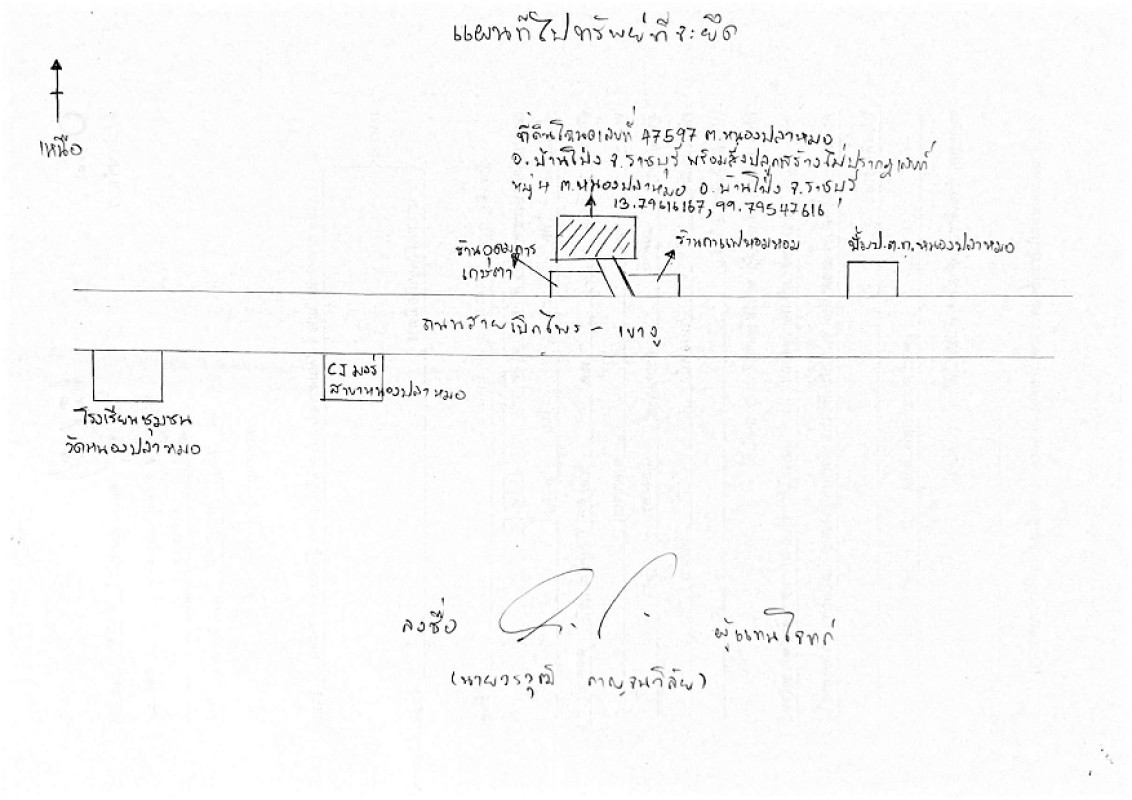 แผนที่ไปทรัพย์ที่จะยึด
เหนือ
ที่ดินโฉนดเลขที่ 47597 ต.หนองปลาหมอ
อ.บ้านโป่ง จ.ราชบุรี พร้อมสิ่งปลูกสร้างไม่ปรากฏเลขที่
หมู่ 4 ต.หนองปลาหมอ อ.บ้านโป่ง จ.ราชบุรี
13.79616167, 99.79547616
ร้านอุดมการ
เกษตร
ร้านกาแฟหอมหอม
ปั๊มป.ต.ท.หนองปลาหมอ
ถนนสายเบิกไพร - เขางู
CJ มอร์
สาขาหนองปลาหมอ
โรงเรียนชุมชน
วัดหนองปลาหมอ
ลงชื่อ ผู้แทนโจทก์
(นายวรวุฒิ กาญจนวิลัย)